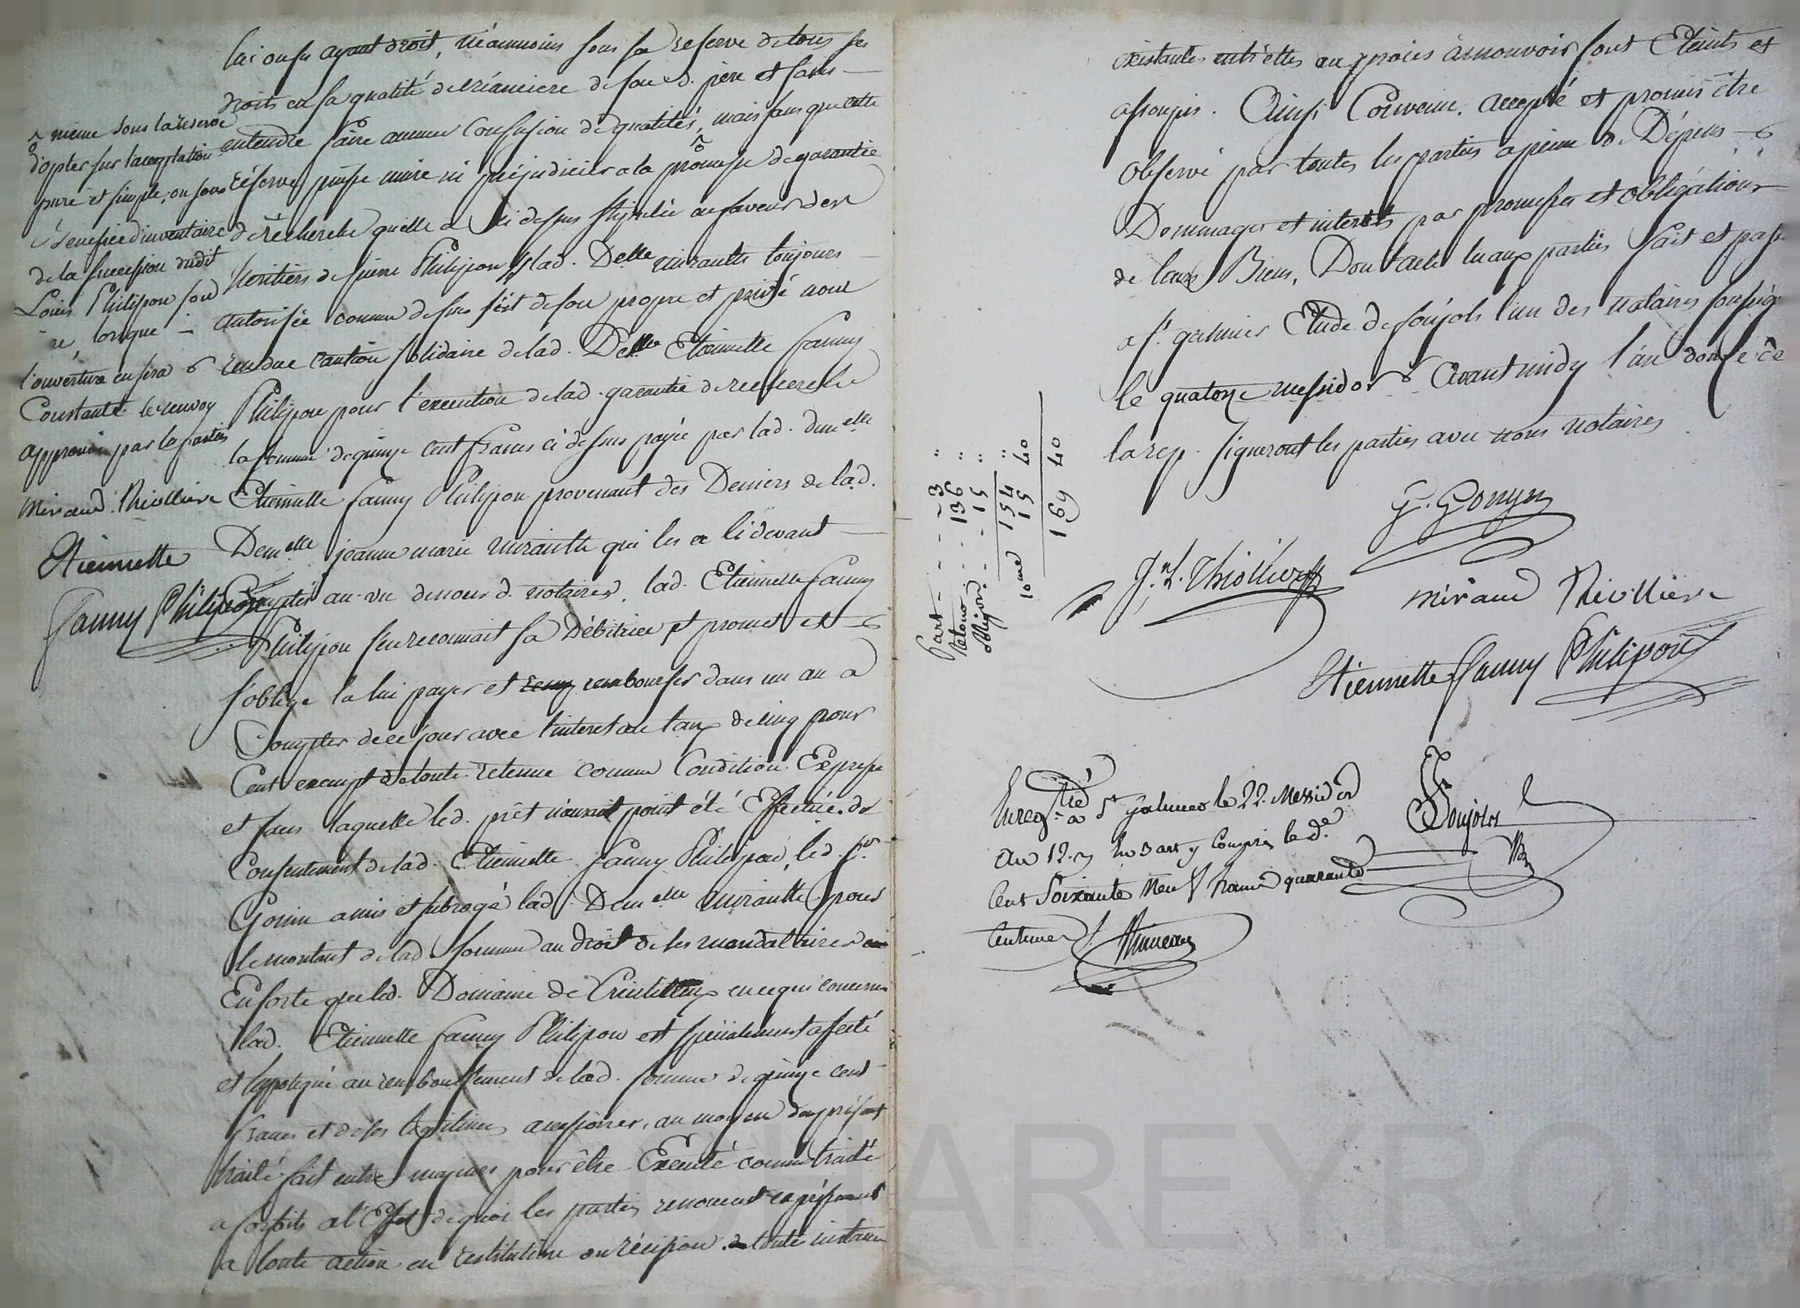 lui ou ses ayant droit, néanmoins sous sa reserve de tous ses
droits en sa qualité de créanciere de feu s. père et sans
entendre faire aucune confusion de qualités, mais sans que cette
réserve puisse nuire ni préjudicier a la promesse de garantie
de recherche quelle a ci dessus stipulée en faveur des
heritiers de pierre Philipon lad. Delle miraulte toujours
autorisée comme dessus s'est de son propre et privé nom
rendue caution solidaire de lad. Delle Etiennette fanny
Philipon pour l'execution de lad. garantie de recherche
la somme de quinze cent francs ci dessus payée par lad. dem.elle
Etiennette fanny Philipon provenant des Deniers de lad.
Dem.elle jeanne marie miraulte qui les a ci devant
comptés au vu de nous d. notaires, lad. Etiennette fanny
Philipon s'en reconnait sa débitrice et promet et
s'oblige la lui payer et rembourser dans un an a
Compter de ce jour avec l'interet au taux de cinq pour
Cent exempt de toute retenue comme Condition Expresse
et sans laquelle led. prêt n'auroit point été Effectué. du
Consentement de lad. Etiennette fanny Philipon, led. sr.
Gonin a mis et subrogé lad. Dem.elle miraulte pour
le montant de lad. somme au droit de ses mandataires
En sorte que led. Domaine de en ce qui concerne
lad. Etiennette fanny Philipon est spécialement affecté
et hypotéqué au remboursement de lad. somme de quinze cent
francs et de ses légitimes accessoires, au moyen du présent
traité fait entre majeurs pour être Exécuté comme traité
a forfait a l'Effet de quoi les parties renoncent expressément
a toute action en restitution ou récision. a toute instance
^ même sous la réserve
d'opter sur l'acceptation
pure et simple, ou sous
Bénéfice d'inventaire
de la succession dudit
Louis Philipon son
re, lorsque
l'ouverture en sera
Constante. le renvoy
approuvé par les parties
miraud Thiolliere
Etiennette
fanny Philipon
existantes entr'elles ou procès à mouvoir sont Eteints et
assoupis. Ainsi Convenu, accepté et promis être
observé par toutes les parties a peine de Dépens
Dommages et interets par promesses et obligations
de leurs Biens, Dont acte lu aux parties fait et passé
a st. galmier Etude de Soujols l'un des notaires soussignés
le quatorze messidor avant midy l'an douze de
la rep. signeront les parties avec nous notaires
G. Gonyn
J.n L. Thiollier
miraud Thiolliere
Etiennette fanny Philipon
Part - - - 3 "
Retour - - - 136 "
- - 15 "
154 "
10me 15 40
169 40
Enreg.tré a St galmier le 22. Messidor
an 12. y compris le de
Cent Soixante Neuf francs quarante
Centimes
Soujols